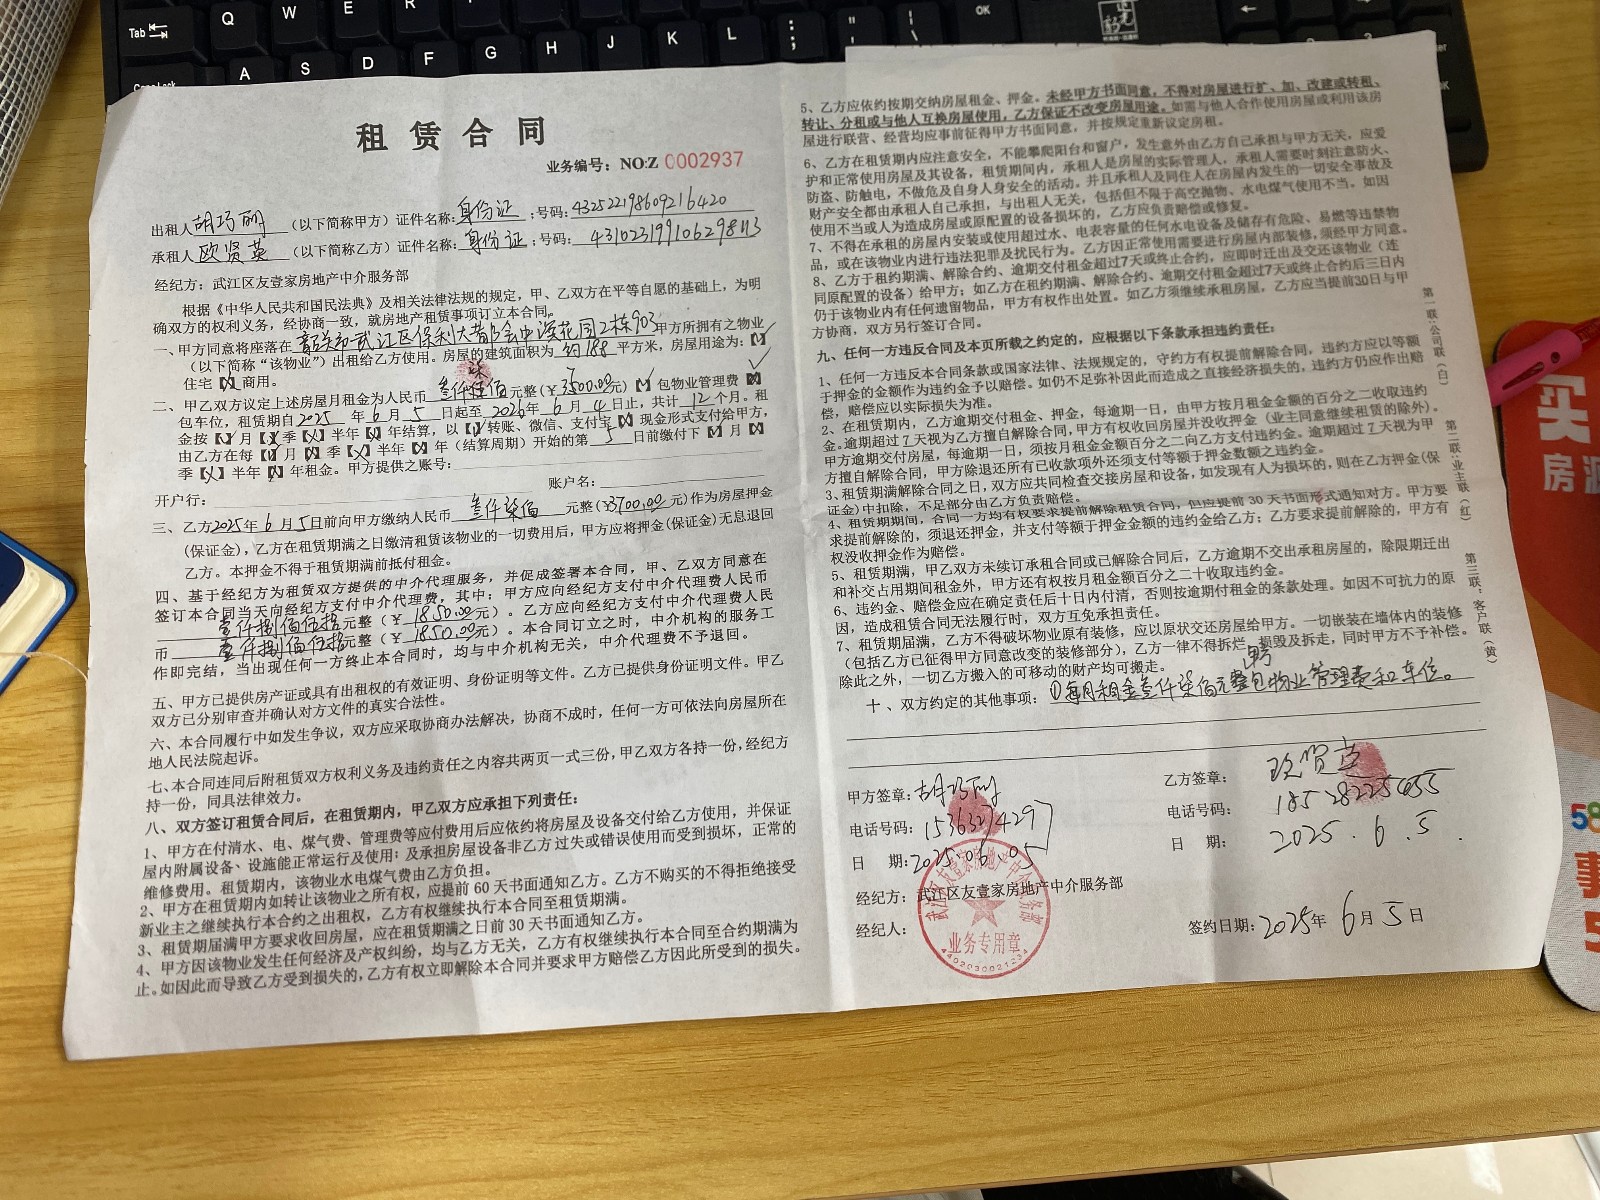 租赁合同
业务编号：NO:Z 0002937
出租人 胡巧丽 （以下简称甲方）证件名称：身份证 ；号码：432522198609216420
承租人 欧贤英 （以下简称乙方）证件名称：身份证 ；号码：
经纪方：武江区友壹家房地产中介服务部
根据《中华人民共和国民法典》及相关法律法规的规定，甲、乙双方在平等自愿的基础上，为明
确双方的权利义务，经协商一致，就房地产租赁事项订立本合同。
一、甲方同意将座落在 韶关市武江区保利大都会中 花园2栋903 甲方所拥有之物业
（以下简称“该物业”）出租给乙方使用。房屋的建筑面积为 约188 平方米，房屋用途为：【√】
住宅【 】商用。
二、甲乙双方议定上述房屋月租金为人民币 叁仟 佰 元整（￥ 元）【√】包物业管理费【 】
包车位，租赁期自2025年6月5日起至2026年6月4日止，共计12个月。租
金按【√】月【 】季【 】半年【 】年结算，以【√】转账、微信、支付宝【 】现金形式支付给甲方，
由乙方在每【√】月【 】季【 】半年【 】年（结算周期）开始的第 5 日前缴付下【 】月【 】
季【 】半年【 】年租金。甲方提供之账号：
开户行： 账户名：
三、乙方2025年6月5日前向甲方缴纳人民币 叁仟柒佰 元整（￥3700.00元）作为房屋押金
(保证金)，乙方在租赁期满之日缴清租赁该物业的一切费用后，甲方应将押金(保证金)无息退回
乙方。本押金不得于租赁期满前抵付租金。
四、基于经纪方为租赁双方提供的中介代理服务，并促成签署本合同，甲、乙双方同意在
签订本合同当天向经纪方支付中介代理费，其中：甲方应向经纪方支付中介代理费人民币
壹仟捌佰伍拾 元整（￥ 1850.00元）。乙方应向经纪方支付中介代理费人民
币 壹仟捌佰伍拾 元整（￥ 1850.00元）。本合同订立之时，中介机构的服务工
作即完结，当出现任何一方终止本合同时，均与中介机构无关，中介代理费不予退回。
五、甲方已提供房产证或具有出租权的有效证明、身份证明等文件。乙方已提供身份证明文件。甲乙
双方已分别审查并确认对方文件的真实合法性。
六、本合同履行中如发生争议，双方应采取协商办法解决，协商不成时，任何一方可依法向房屋所在
地人民法院起诉。
七、本合同连同后附租赁双方权利义务及违约责任之内容共两页一式三份，甲乙双方各持一份，经纪方
持一份，同具法律效力。
八、双方签订租赁合同后，在租赁期内，甲乙双方应承担下列责任：
1、甲方在付清水、电、煤气费、管理费等应付费用后应依约将房屋及设备交付给乙方使用，并保证
屋内附属设备、设施能正常运行及使用；及承担房屋设备非乙方过失或错误使用而受到损坏，正常的
维修费用。租赁期内，该物业水电煤气费由乙方负担。
2、甲方在租赁期内如转让该物业之所有权，应提前60天书面通知乙方。乙方不购买的不得拒绝接受
新业主之继续执行本合约之出租权，乙方有权继续执行本合同至租赁期满。
3、租赁期届满甲方要求收回房屋，应在租赁期满之日前30天书面通知乙方。
4、甲方因该物业发生任何经济及产权纠纷，均与乙方无关，乙方有权继续执行本合同至合约期满为
止。如因此而导致乙方受到损失的，乙方有权立即解除本合同并要求甲方赔偿乙方因此所受到的损失。
5、乙方应依约按期交纳房屋租金、押金。未经甲方书面同意，不得对房屋进行扩、加、改建或转租、
转让、分租或与他人互换房屋使用，乙方保证不改变房屋用途。如需与他人合作使用房屋或利用该房
屋进行联营、经营均应事前征得甲方书面同意，并按规定重新议定房租。
6、乙方在租赁期内应注意安全，不能攀爬阳台和窗户，发生意外由乙方自己承担与甲方无关，应爱
护和正常使用房屋及其设备，租赁期间内，承租人是房屋的实际管理人，承租人需要时刻注意防火、
防盗、防触电，不做危及自身人身安全的活动。并且承租人及同住人在房屋内发生的一切安全事故及
财产安全都由承租人自己承担，与出租人无关，包括但不限于高空抛物、水电煤气使用不当。如因
使用不当或人为造成房屋或原配置的设备损坏的，乙方应负责赔偿或修复。
7、不得在承租的房屋内安装或使用超过水、电表容量的任何水电设备及储存有危险、易燃等违禁物
品，或在该物业内进行违法犯罪及扰民行为。乙方因正常使用需要进行房屋内部装修，须经甲方同意。
8、乙方于租约期满、解除合约、逾期交付租金超过7天或终止合约，应即时迁出及交还该物业（连
同原配置的设备）给甲方；如乙方在租约期满、解除合约、逾期交付租金超过7天或终止合约后三日内
仍于该物业内有任何遗留物品，甲方有权作出处置。如乙方须继续承租房屋，乙方应当提前30日与甲
方协商，双方另行签订合同。
九、任何一方违反合同及本页所载之约定的，应根据以下条款承担违约责任：
1、任何一方违反本合同条款或国家法律、法规规定的，守约方有权提前解除合同，违约方应以等额
于押金的金额作为违约金予以赔偿。如仍不足弥补因此而造成之直接经济损失的，违约方仍应作出赔
偿，赔偿应以实际损失为准。
2、在租赁期内，乙方逾期交付租金、押金，每逾期一日，由甲方按月租金金额的百分之二收取违约
金。逾期超过7天视为乙方擅自解除合同，甲方有权收回房屋并没收押金（业主同意继续租赁的除外）。
甲方逾期交付房屋，每逾期一日，须按月租金金额百分之二向乙方支付违约金。逾期超过7天视为甲
方擅自解除合同，甲方除退还所有已收款项外还须支付等额于押金数额之违约金。
3、租赁期满解除合同之日，双方应共同检查交接房屋和设备，如发现有人为损坏的，则在乙方押金(保
证金)中扣除，不足部分由乙方负责赔偿。
4、租赁期期间，合同一方均有权要求提前解除租赁合同，但应提前30天书面形式通知对方。甲方要
求提前解除的，须退还押金，并支付等额于押金金额的违约金给乙方；乙方要求提前解除的，甲方有
权没收押金作为赔偿。
5、租赁期满，甲乙双方未续订承租合同或已解除合同后，乙方逾期不交出承租房屋的，除限期迁出
和补交占用期间租金外，甲方还有权按月租金额百分之二十收取违约金。
6、违约金、赔偿金应在确定责任后十日内付清，否则按逾期付租金的条款处理。如因不可抗力的原
因，造成租赁合同无法履行时，双方互免承担责任。
7、租赁期届满，乙方不得破坏物业原有装修，应以原状交还房屋给甲方。一切嵌装在墙体内的装修
（包括乙方已征得甲方同意改变的装修部分），乙方一律不得拆烂、损毁及拆走，同时甲方不予补偿。
除此之外，一切乙方搬入的可移动的财产均可搬走。
十、双方约定的其他事项：①每月租金叁仟柒佰元整包物业管理费和车位。
甲方签章：胡巧丽
电话号码：
日 期：2025.06.05
乙方签章：欧贤英
电话号码：
日 期：2025.6.5.
经纪方：武江区友壹家房地产中介服务部
经纪人：
签约日期：2025年6月5日
业务专用章
4402030021234
第一联：公司联（白）
第二联：业主联（红）
第三联：客户联（黄）
Tab
Q
W
E
R
A
S
D
F
G
H
J
K
L
买
房源
58
事
5